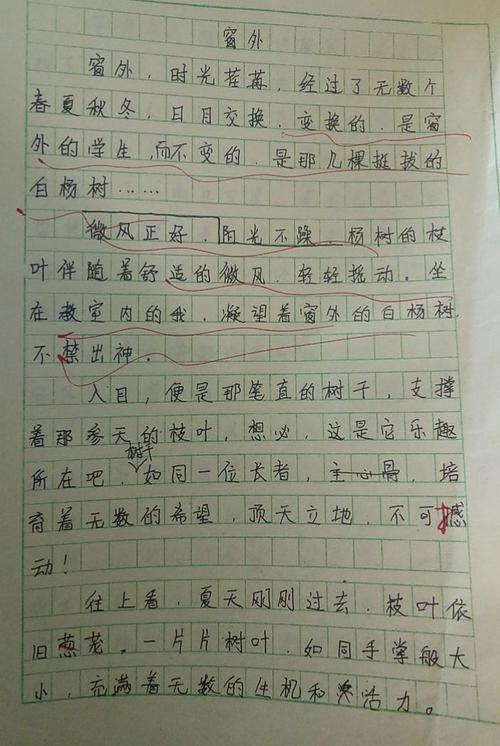 窗外
窗外，时光荏苒，经过了无数个
春夏秋冬，日月交换，变换的，是窗
外的学生，而不变的，是那几棵挺拔的
白杨树……
微风正好，阳光不躁，杨树的枝
叶伴随着舒适的微风，轻轻摇动。坐
在教室内的我，凝望着窗外的白杨树，
不禁出神。
入目，便是那笔直的树干，支撑
着那参天的枝叶，想必，这是它乐趣
树干
所在吧，如同一位长者，主心骨，培
育着无数的希望，顶天立地，不可撼
动！
往上看，夏天刚刚过去，枝叶依
旧葱茏。一片片树叶，如同手掌般大
小，充满着无数的生机和活力。